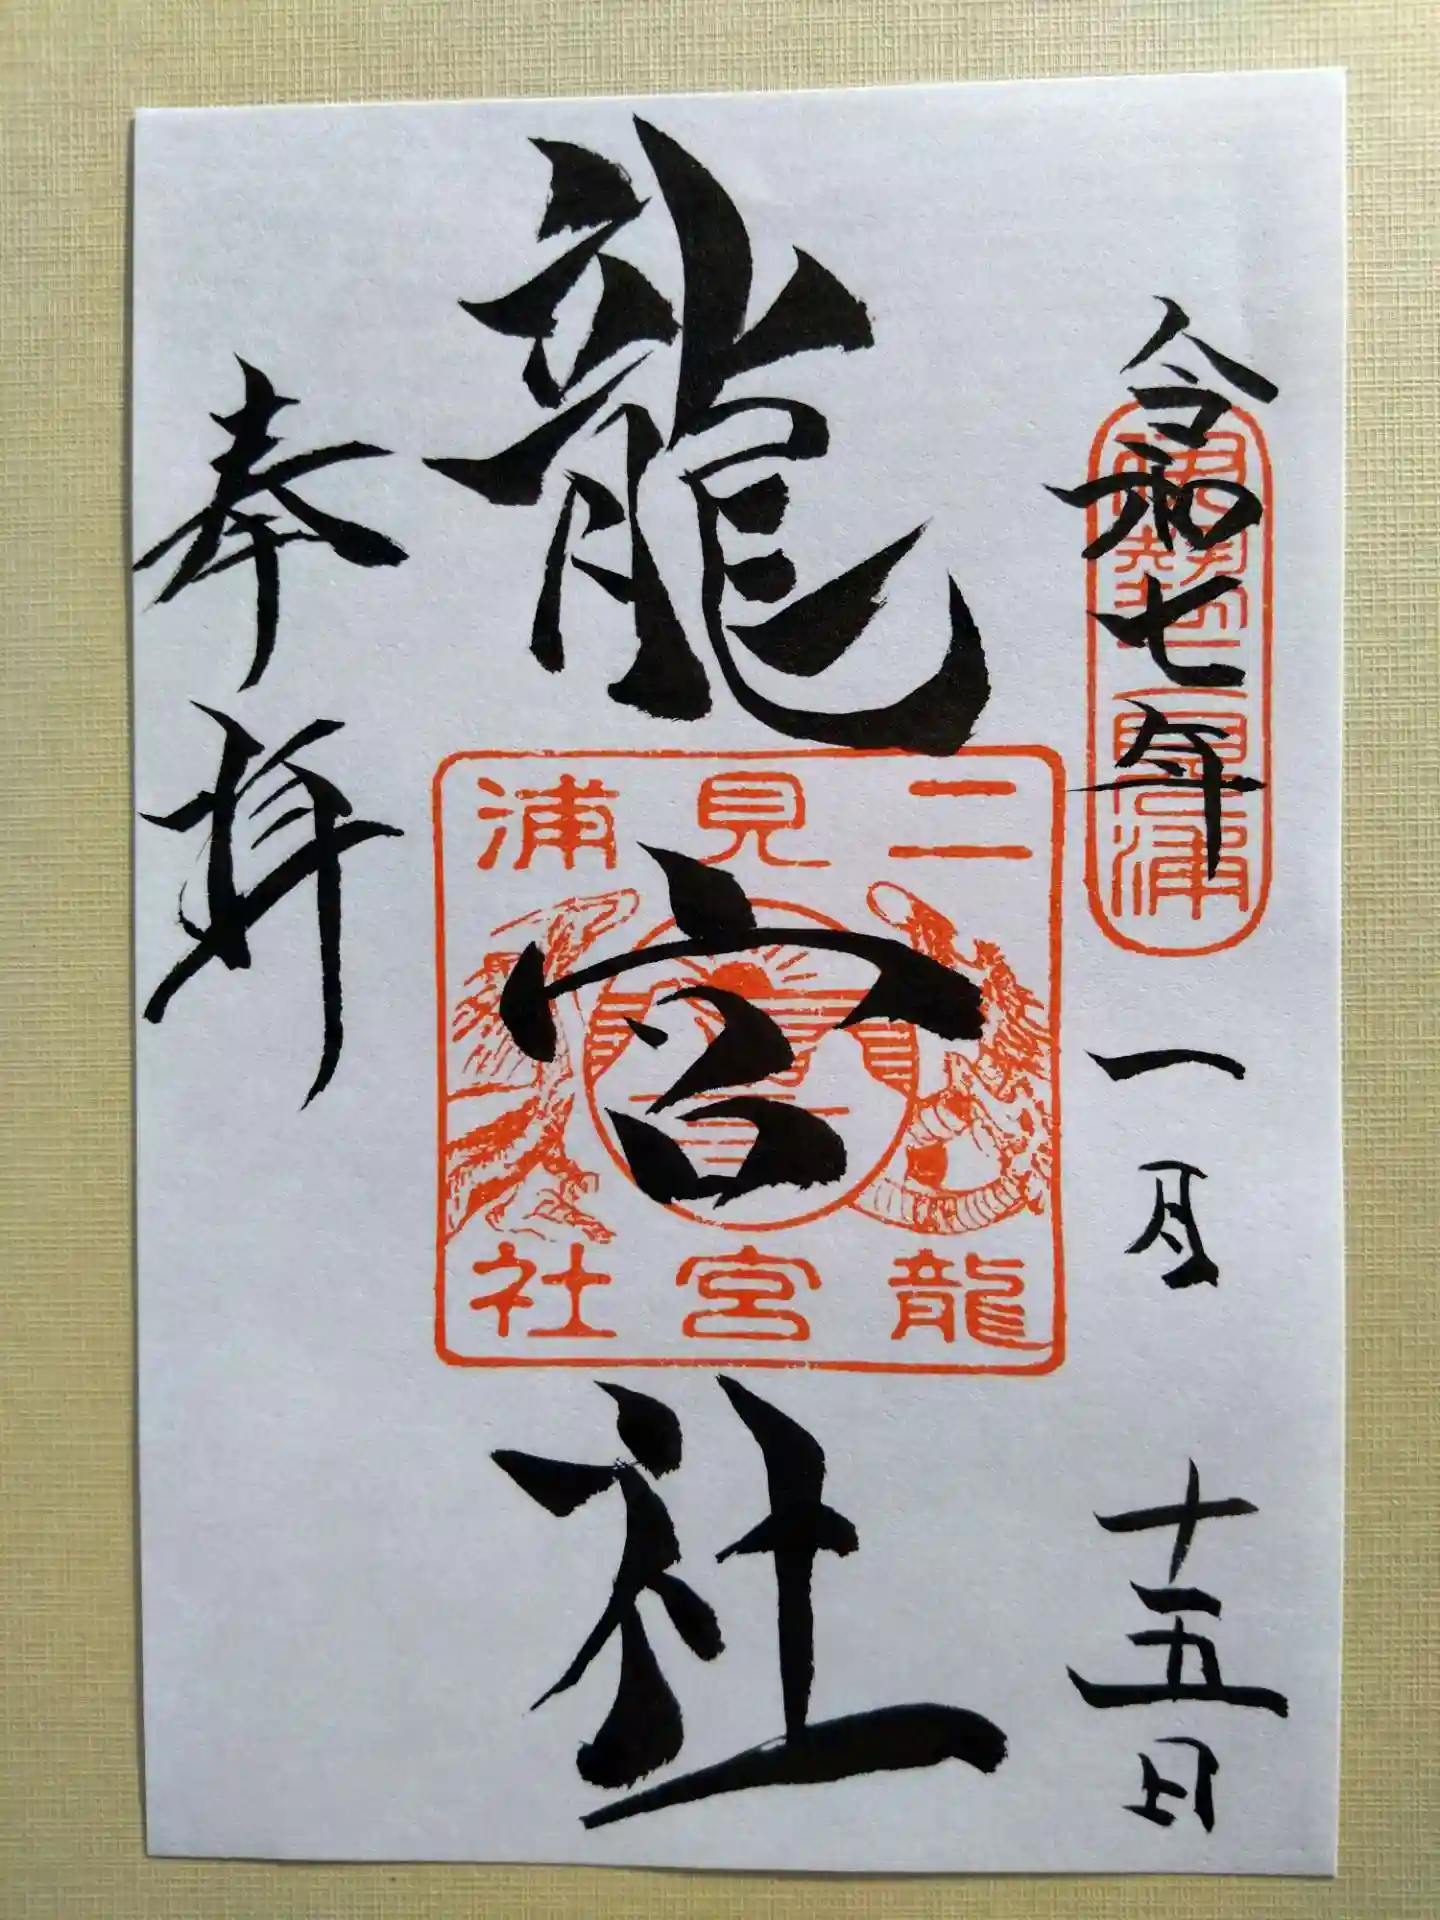 令和七年一月十五日
伊勢二見浦
龍宮社
二見浦
龍宮社
奉拝